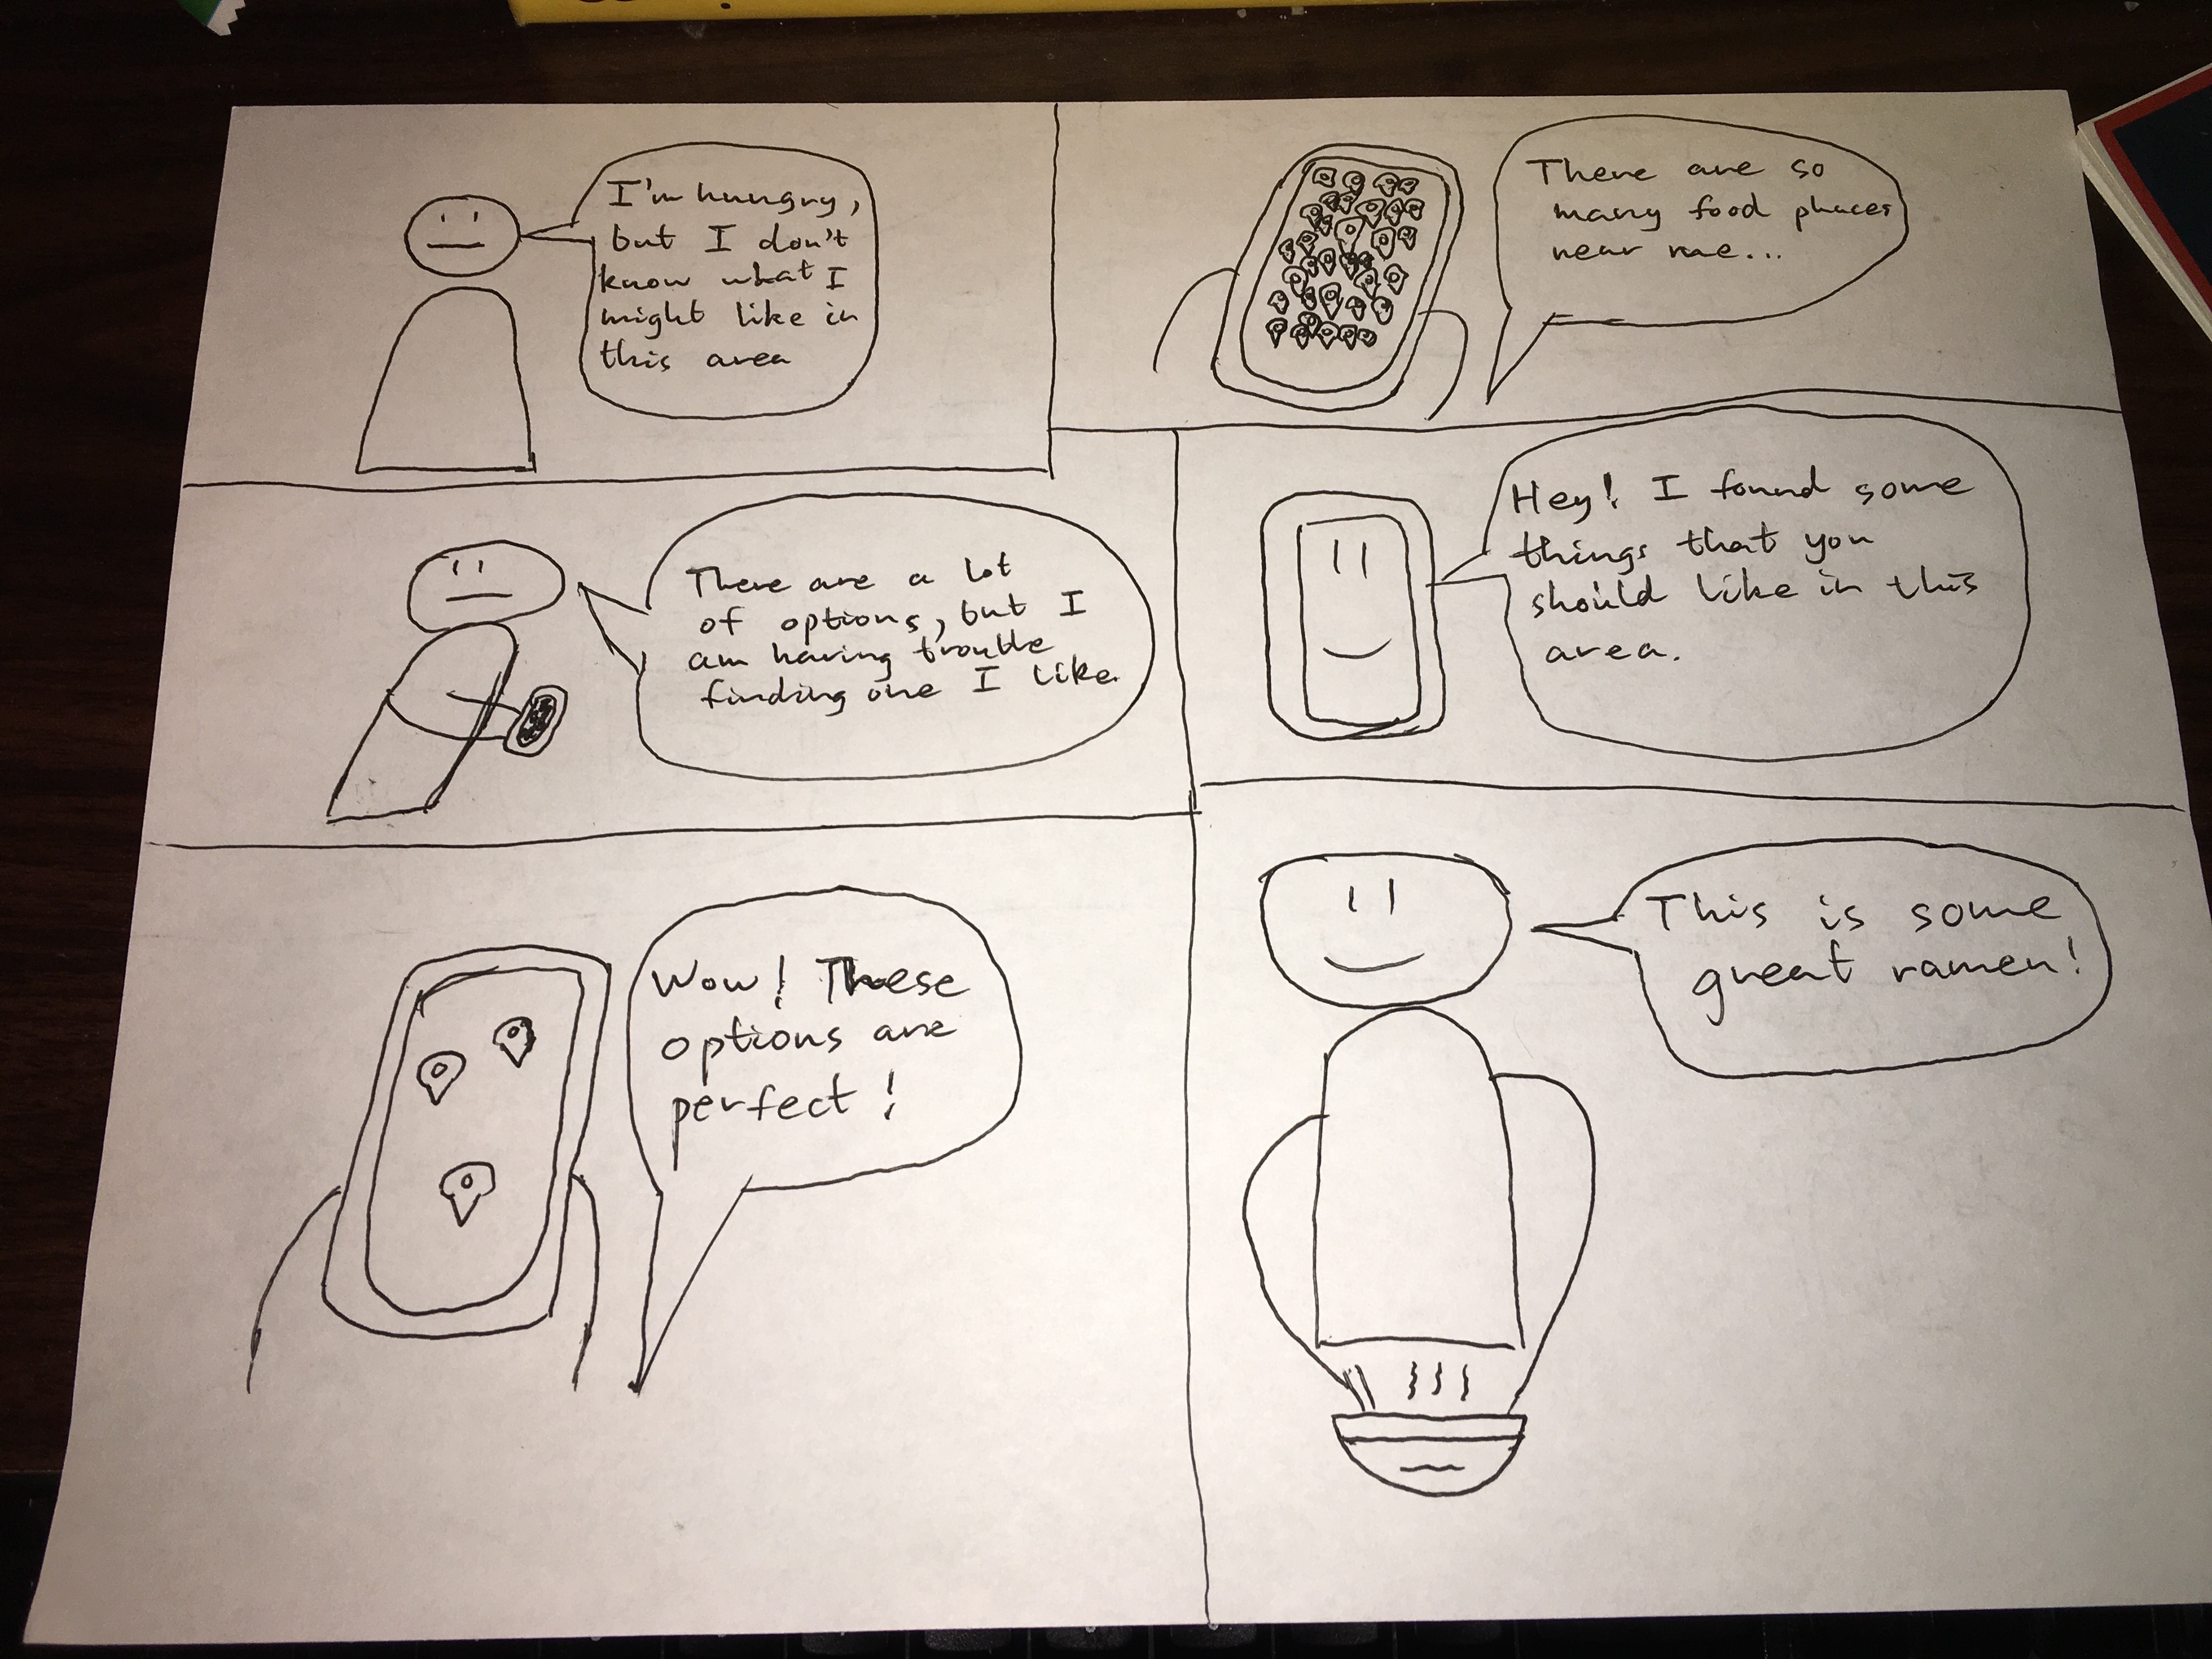 I'm hungry,
but I don't
know what I
might like in
this area
There are so
many food places
near me...
There are a lot
of options, but I
am having trouble
finding one I like.
Hey! I found some
things that you
should like in this
area.
Wow! These
options are
perfect!
This is some
great ramen!